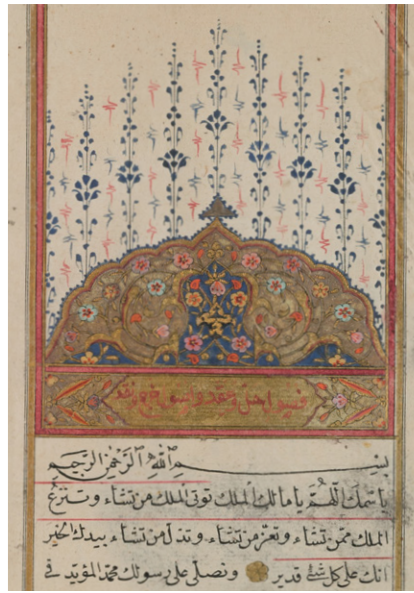 بِسْمِ ٱللّٰهِ ٱلرَّحْمٰنِ ٱلرَّحِيمِ
باسمك اللّهُمّ يا مالك الملك توتى الملك من تشاء وتنزعُ
الملك ممّن تشاء وتعزّ من تشاء وتذلّ من تشاء بيدك الخير
انك على كل شئ قدير ونصلى على رسولك محمّد المؤيّد فى